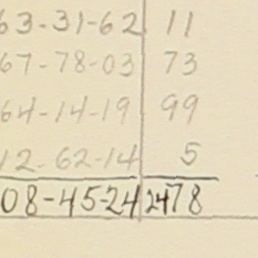 63-31-62 11
67-78-03 73
64-14-19 99
12-62-14 5
08-45-24 2478